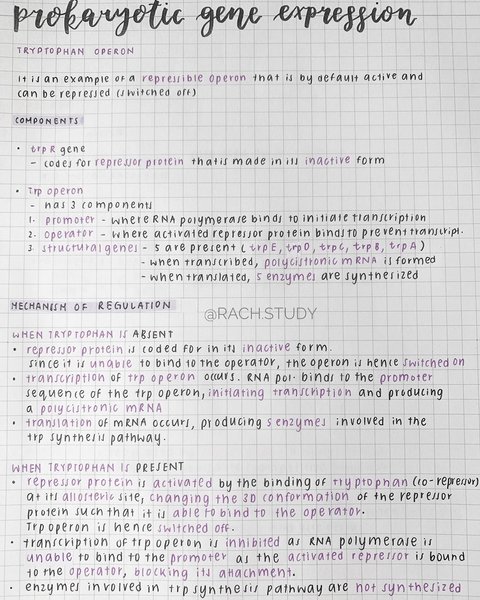 prokaryotic gene expression
TRYPTOPHAN OPERON
It is an example of a repressible operon that is by default active and
can be repressed (switched off)
COMPONENTS
• trpR gene
- codes for repressor protein that is made in its inactive form
• Trp operon
- has 3 components
1. promoter - where RNA polymerase binds to initiate transcription
2. operator - where activated repressor protein binds to prevent transcript.
3. structural genes - 5 are present (trpE, trpD, trpC, trpB, trpA)
- when transcribed, polycistronic mRNA is formed
- when translated, 5 enzymes are synthesized
MECHANISM OF REGULATION
@RACH.STUDY
WHEN TRYPTOPHAN IS ABSENT
• repressor protein is coded for in its inactive form.
since it is unable to bind to the operator, the operon is hence switched on
• transcription of trp operon occurs. RNA pol. binds to the promoter
sequence of the trp operon, initiating transcription and producing
a polycistronic mRNA
• translation of mRNA occurs, producing 5 enzymes involved in the
trp synthesis pathway.
WHEN TRYPTOPHAN IS PRESENT
• repressor protein is activated by the binding of tryptophan (co-repressor)
at its allosteric site, changing the 3D conformation of the repressor
protein such that it is able to bind to the operator.
Trp operon is hence switched off.
• transcription of trp operon is inhibited as RNA polymerase is
unable to bind to the promoter as the activated repressor is bound
to the operator, blocking its attachment.
• enzymes involved in trp synthesis pathway are not synthesized